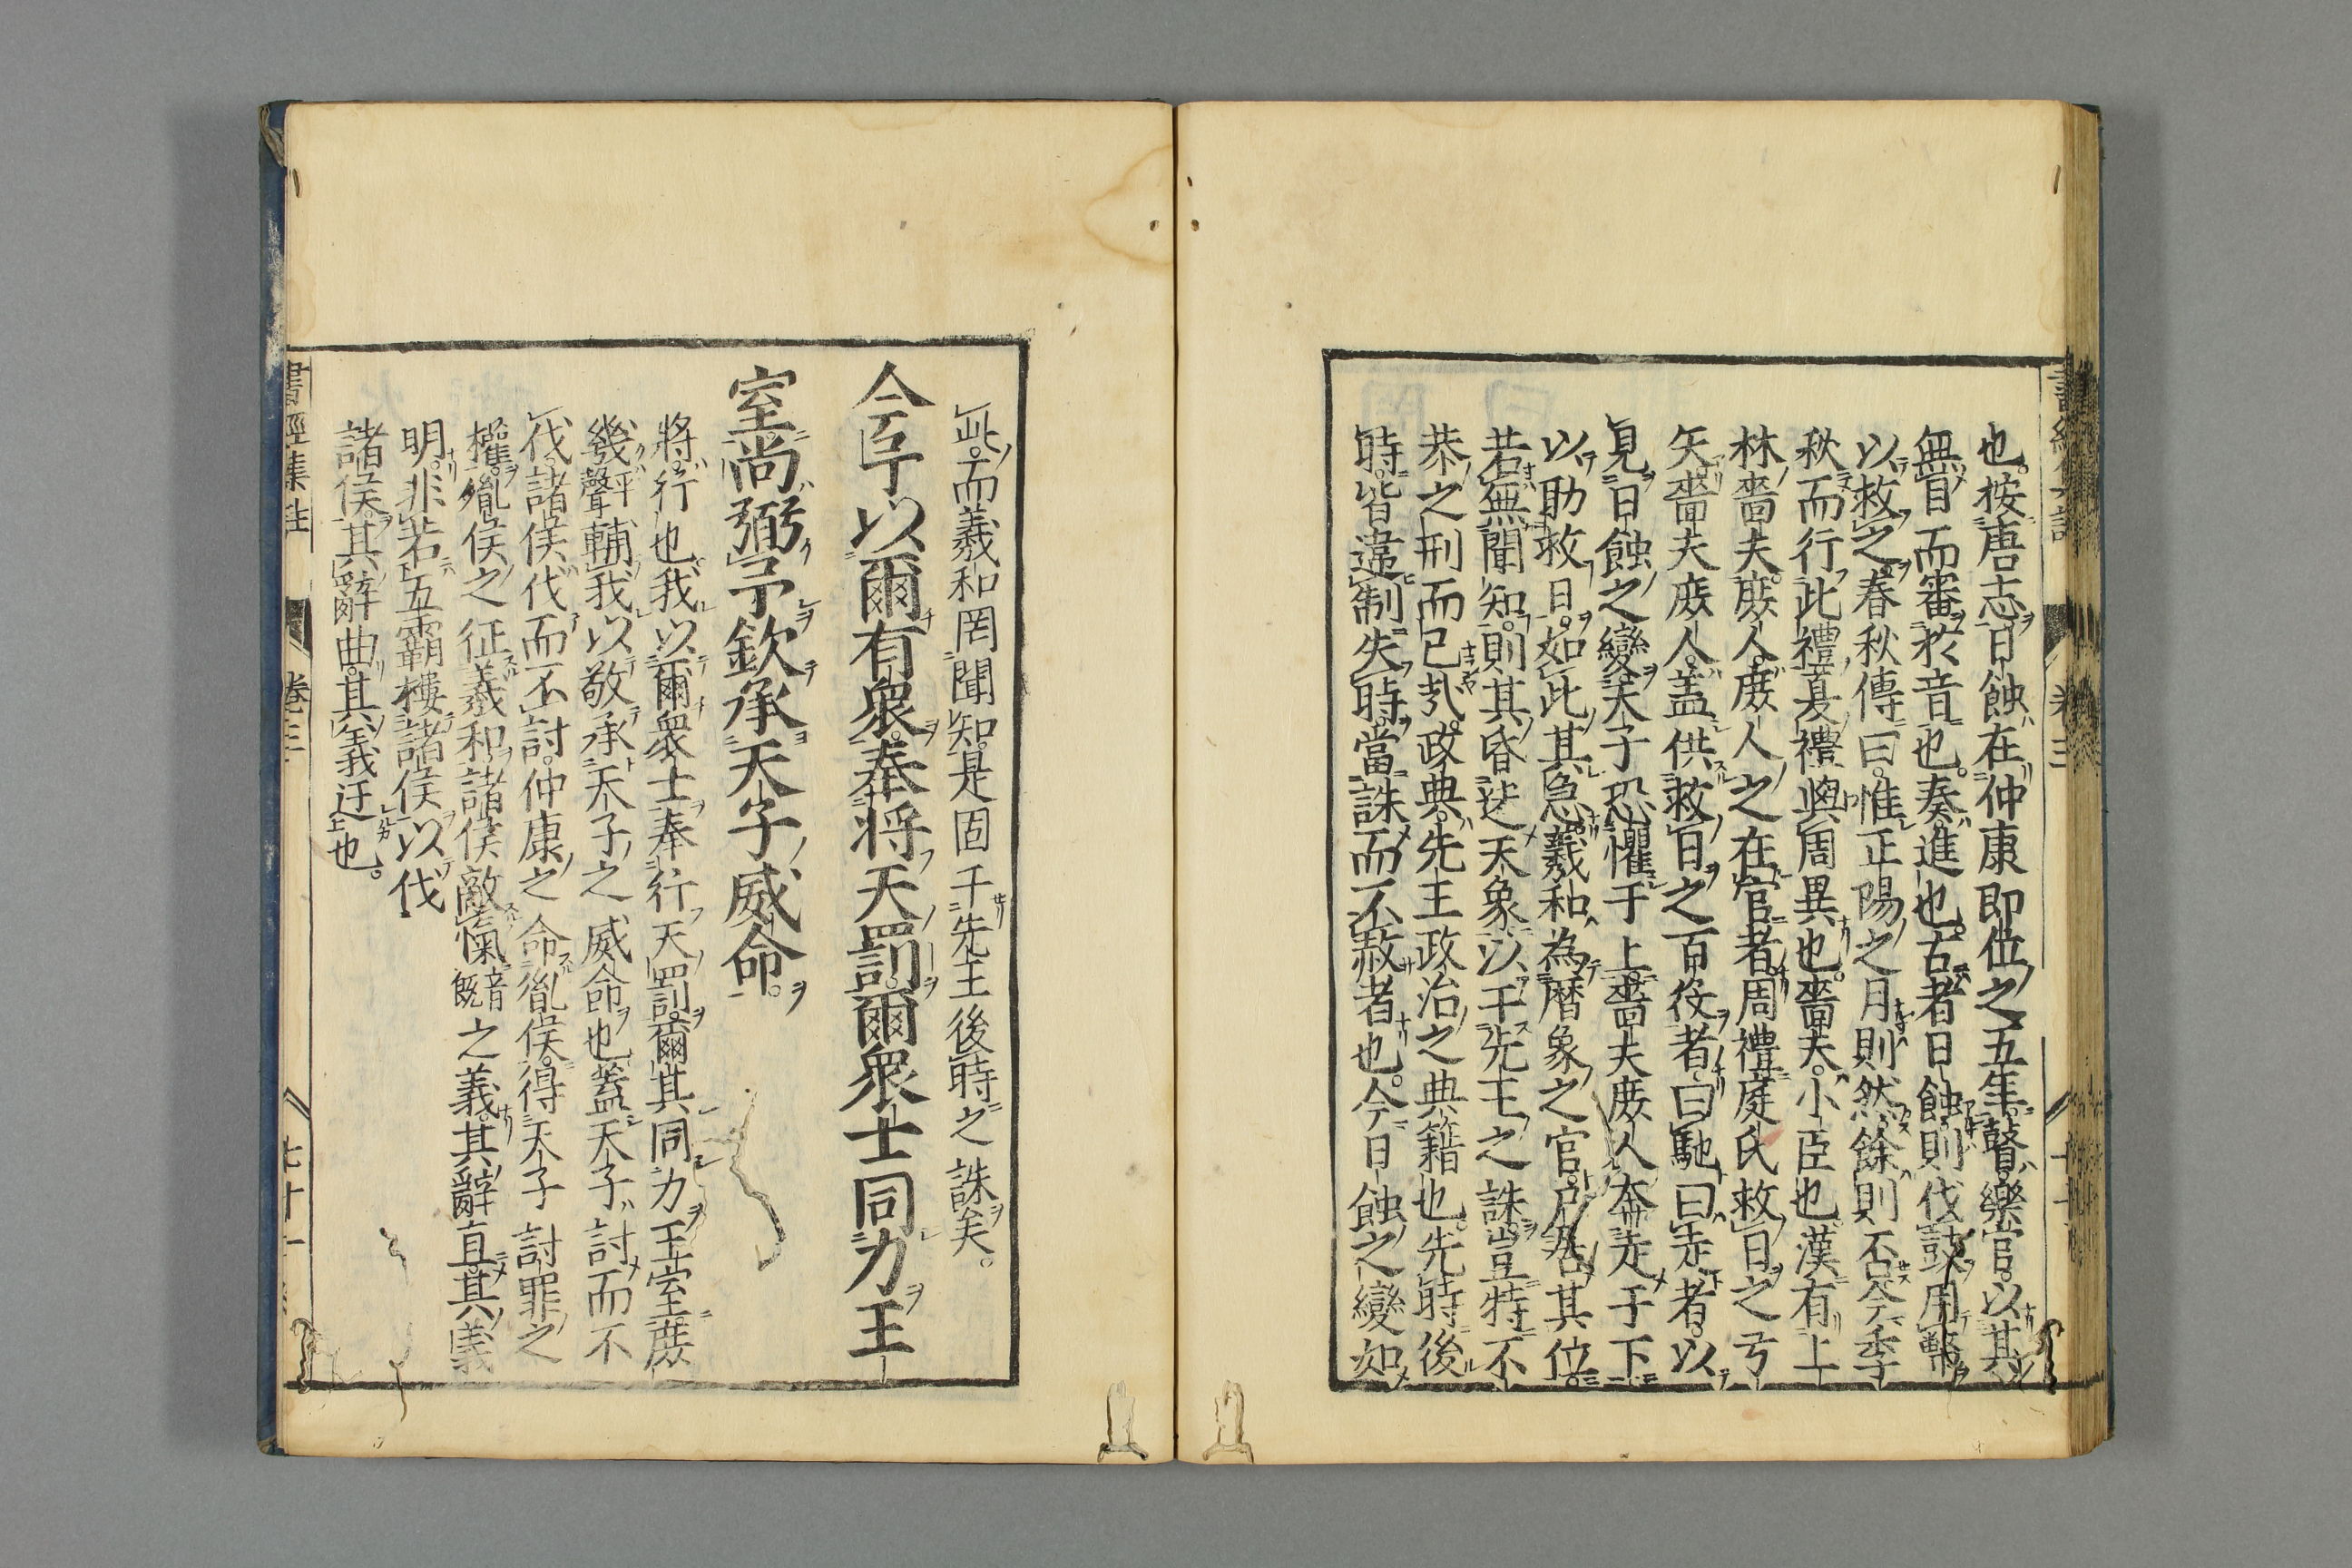 也。按唐志日蝕在仲康即位之五年。瞽樂官。以其
無目而審於音也。奏進也。古者日蝕則伐鼓用幣
以救之。春秋傳曰。惟正陽之月則然。餘則否。今季
秋而行此禮。夏禮與周異也。嗇夫。小臣也。漢有上
林嗇夫。庶人。庶人之在官者。周禮庭氏救日之弓
矢。嗇夫庶人。蓋供救日之百役者。曰馳曰走者。以
見日蝕之變天子恐懼于上。嗇夫庶人奔走于下
以助救日。如此其急。羲和為曆象之官。尸居其位。
若無聞知。則其昏迷天象以干先王之誅。豈特不
恭之刑而已哉。政典。先王政治之典籍也。先時後
時。皆違制失時。當誅而不赦者也。今日蝕之變如
此。而羲和罔聞知。是固干先王後時之誅矣。
今予以爾有衆。奉將天罰。爾衆士同力王
室。尚弼予欽承天子威命。
將。行也。我以爾衆士奉行天罰。爾其同力王室。庶
幾平聲輔我以敬承天子之威命也。蓋天子討而不
伐。諸侯伐而不討。仲康之命胤侯。得天子討罪之
權。胤侯之征羲和。得諸侯敵愾音既之義。其辭直。其義
明。非若五霸摟諸侯以伐
諸侯。其辭曲。其義迂上也。
書經集註 卷三 七十一